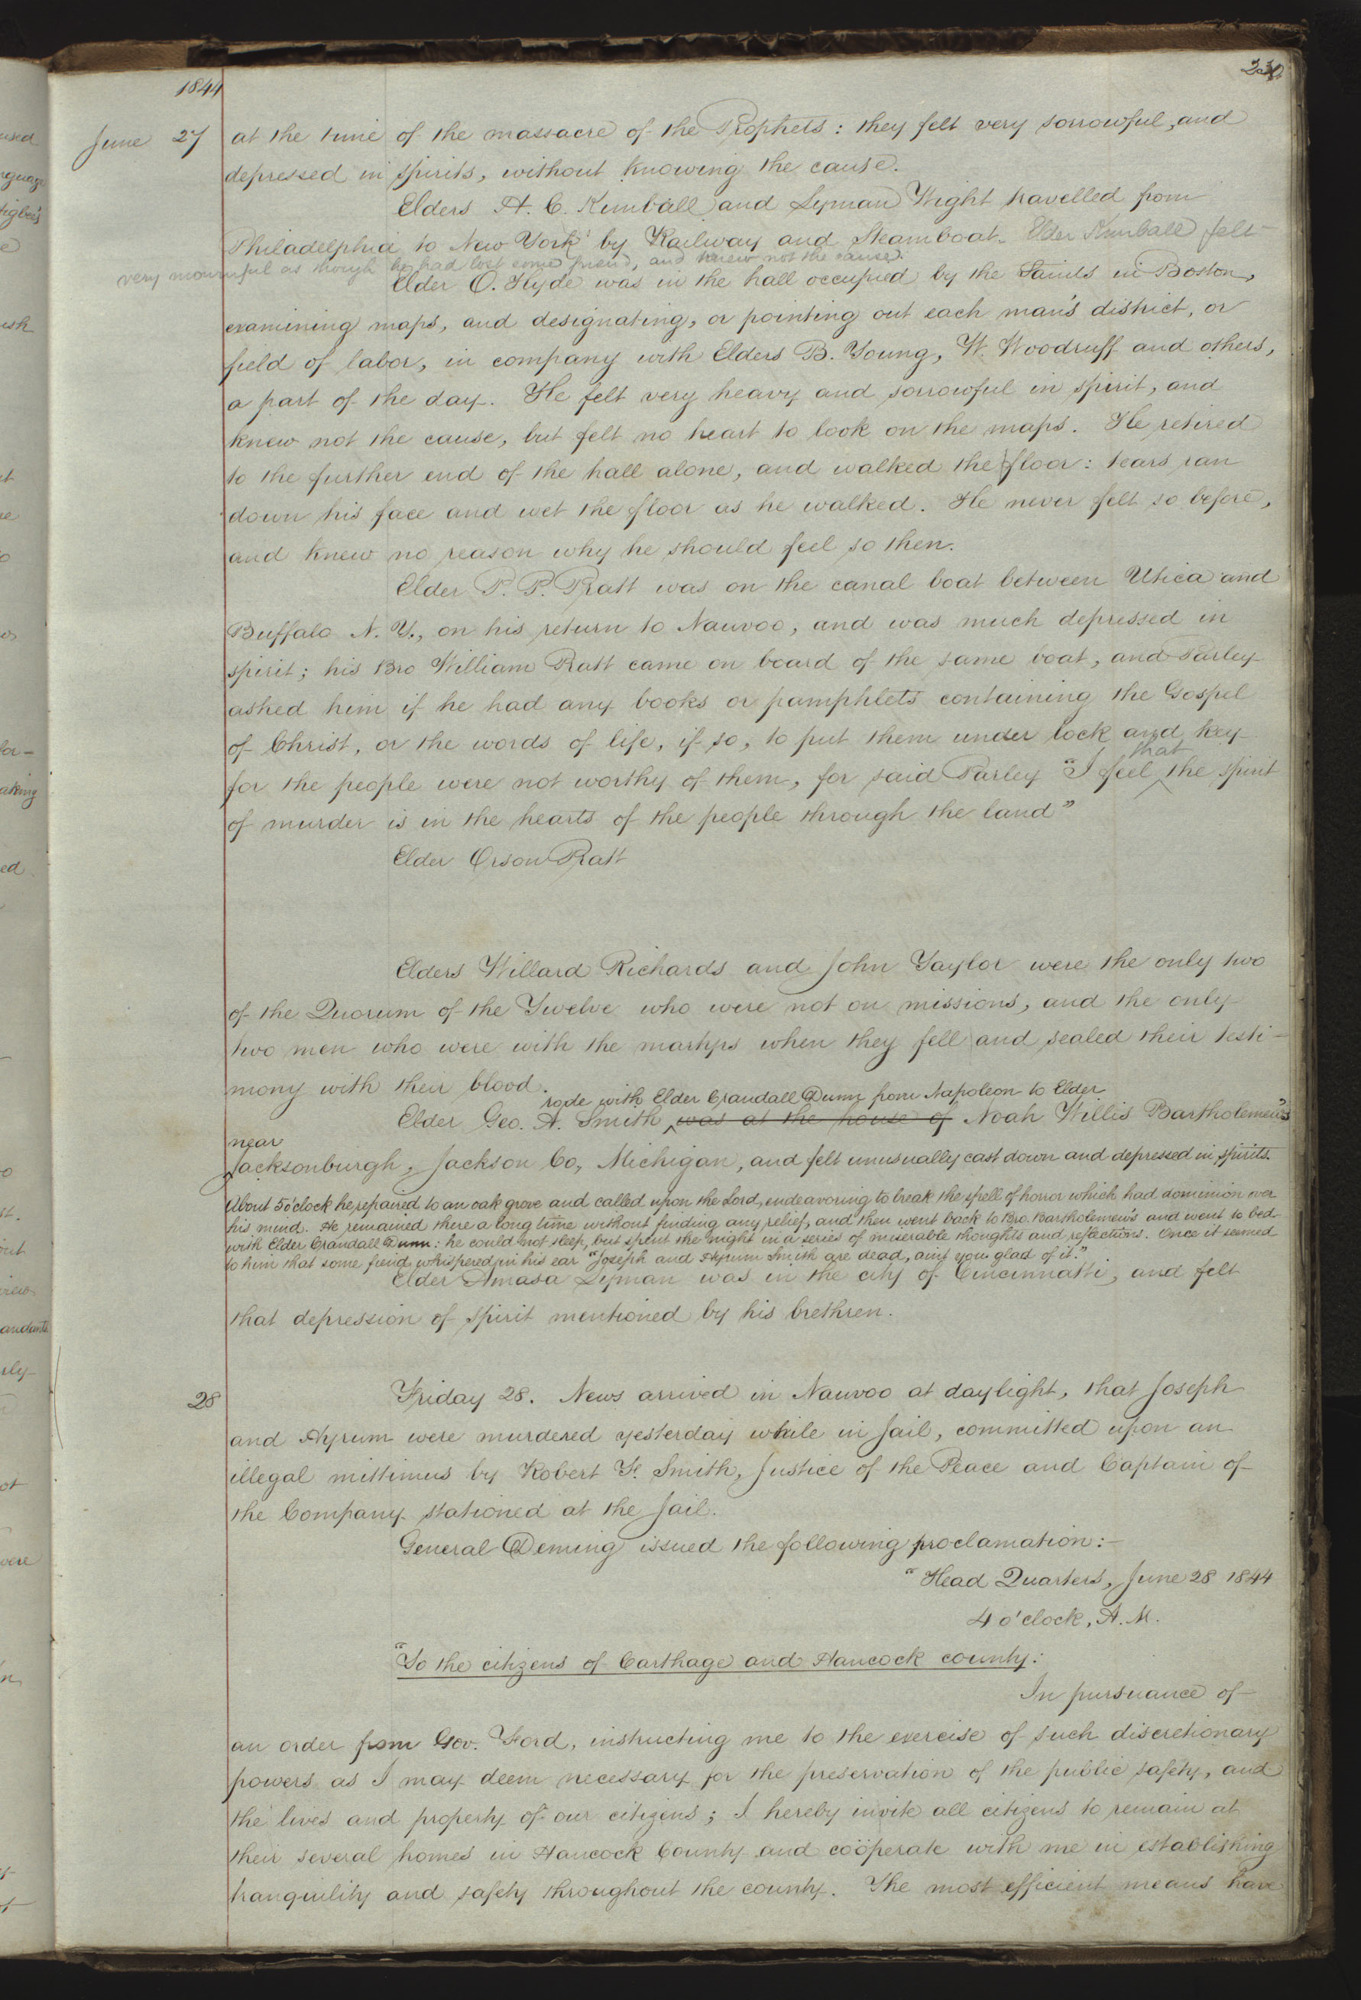 1844
June 27 at the time of the massacre of the Prophets: they felt very sorrowful, and
depressed in spirits, without knowing the cause.
Elders H. C. Kimball and Lyman Wight travelled from
Philadelphia to New York by Railway and Steamboat. Elder Kimball felt
very mournful as though he had lost some friend, and knew not the cause.
Elder O. Hyde was in the hall occupied by the Saints in Boston,
examining maps, and designating, or pointing out each man's district, or
field of labor, in company with Elders B. Young, W. Woodruff and others,
a part of the day. He felt very heavy and sorrowful in spirit, and
knew not the cause, but felt no heart to look on the maps. He retired
to the further end of the hall alone, and walked the floor: tears ran
down his face and wet the floor as he walked. He never felt so before,
and knew no reason why he should feel so then.
Elder P. P. Pratt was on the canal boat between Utica and
Buffalo N. Y., on his return to Nauvoo, and was much depressed in
spirit; his Bro William Pratt came on board of the same boat, and Parley
asked him if he had any books or pamphlets containing the Gospel
of Christ, or the words of life, if so, to put them under lock and key
for the people were not worthy of them, for said Parley "I feel that the spirit
of murder is in the hearts of the people through the land"
Elder Orson Pratt
Elders Willard Richards and John Taylor were the only two
of the Quorum of the Twelve who were not on missions, and the only
two men who were with the martyrs when they fell and sealed their testi-
mony with their blood.
rode with Elder Crandall Dunn from Napoleon to Elder
Elder Geo. A. Smith was at the house of Noah Willis Bartholemew's
near
Jacksonburgh, Jackson Co, Michigan, and felt unusually cast down and depressed in spirits.
About 5 o'clock he repaired to an oak grove and called upon the Lord, endeavoring to break the spell of horror which had dominion over
his mind. He remained there a long time without finding any relief, and then went back to Bro. Bartholemew's and went to bed
with Elder Crandall Dunn: he could not sleep, but spent the night in a series of miserable thoughts and reflections. Once it seemed
to him that some fiend whispered in his ear "Joseph and Hyrum Smith are dead, ain't you glad of it."
Elder Amasa Lyman was in the city of Cincinnatti, and felt
that depression of spirit mentioned by his brethren.
28 Friday 28. News arrived in Nauvoo at daylight, that Joseph
and Hyrum were murdered yesterday while in Jail, committed upon an
illegal mittimus by Robert F. Smith, Justice of the Peace and Captain of
the Company stationed at the Jail.
General Deming issued the following proclamation:—
"Head Quarters, June 28 1844
4 o'clock, A.M.
"To the citizens of Carthage and Hancock county:
In pursuance of
an order from Gov. Ford, instructing me to the exercise of such discretionary
powers as I may deem necessary for the preservation of the public safety, and
the lives and property of our citizens; I hereby invite all citizens to remain at
their several homes in Hancock County and coöperate with me in establishing
tranquility and safety throughout the county. The most efficient means have